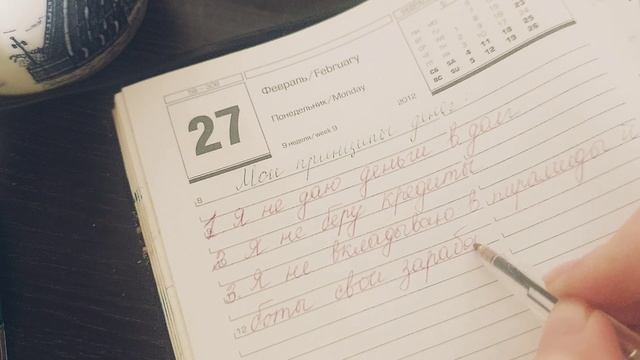 27
Февраль/February
Понедельник/Monday
2012
9 неделя/week 9
СБ SA 4 11 18 25
ВС SU 5 12 19 26
Мои принципы денег:
8
1 Я не даю деньги в долг
2 Я не беру кредиты
3. Я не вкладываю в пирамиды и
боты свои зарабо
12